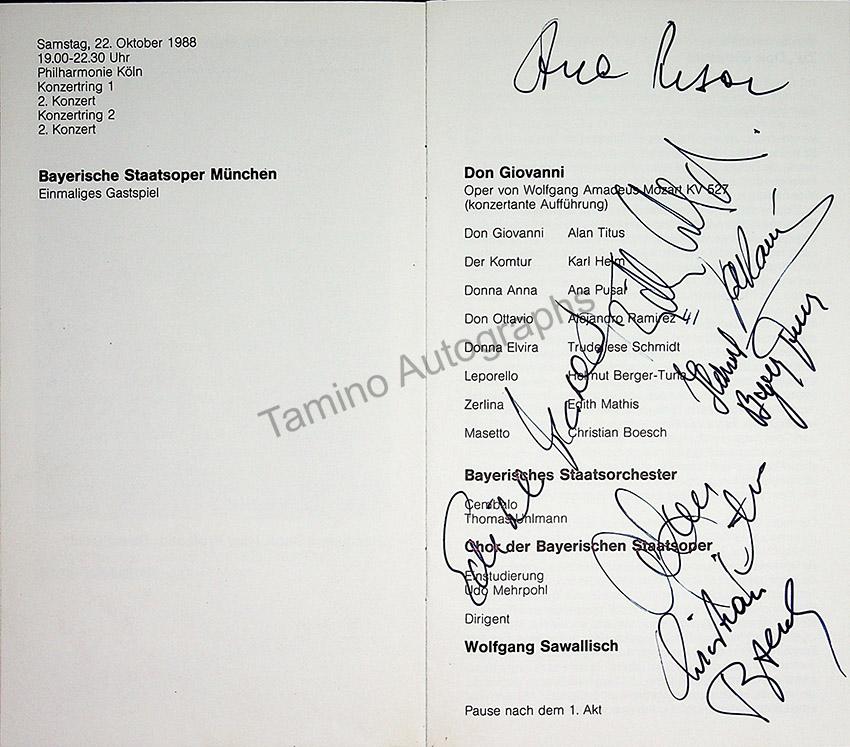 Samstag, 22. Oktober 1988
19.00-22.30 Uhr
Philharmonie Köln
Konzertring 1
2. Konzert
Konzertring 2
2. Konzert
Bayerische Staatsoper München
Einmaliges Gastspiel
Ana Pusar
Don Giovanni
Oper von Wolfgang Amadeus Mozart KV 527
(konzertante Aufführung)
Don Giovanni Alan Titus
Der Komtur Karl Helm
Donna Anna Ana Pusar
Don Ottavio Alejandro Ramirez
Donna Elvira Trudeliese Schmidt
Leporello Helmut Berger-Tuna
Zerlina Edith Mathis
Masetto Christian Boesch
Bayerisches Staatsorchester
Cembalo
Thomas Uhlmann
Chor der Bayerischen Staatsoper
Einstudierung
Udo Mehrpohl
Dirigent
Wolfgang Sawallisch
Pause nach dem 1. Akt
Christian
Boesch
Tamino Autographs